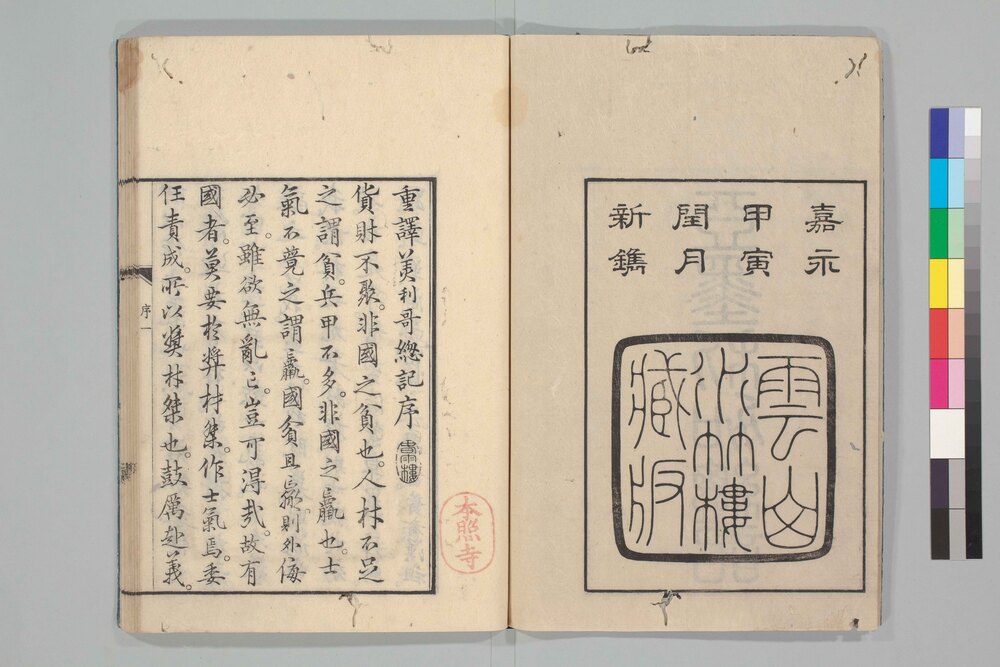 嘉永
甲寅
閏月
新鐫
雲向
小竹樓
藏版
重譯美利哥總記序
貨財不聚。非國之貧也。人材不足
之謂貧。兵甲不多。非國之羸也。士
氣不競之謂羸。國貧且羸。則外侮
必至。雖欲無亂亡。豈可得哉。故有
國者。莫要於奬材桀。作士氣焉。委
任責成。所以奬材桀也。鼓厲赴義。
序一
本照寺